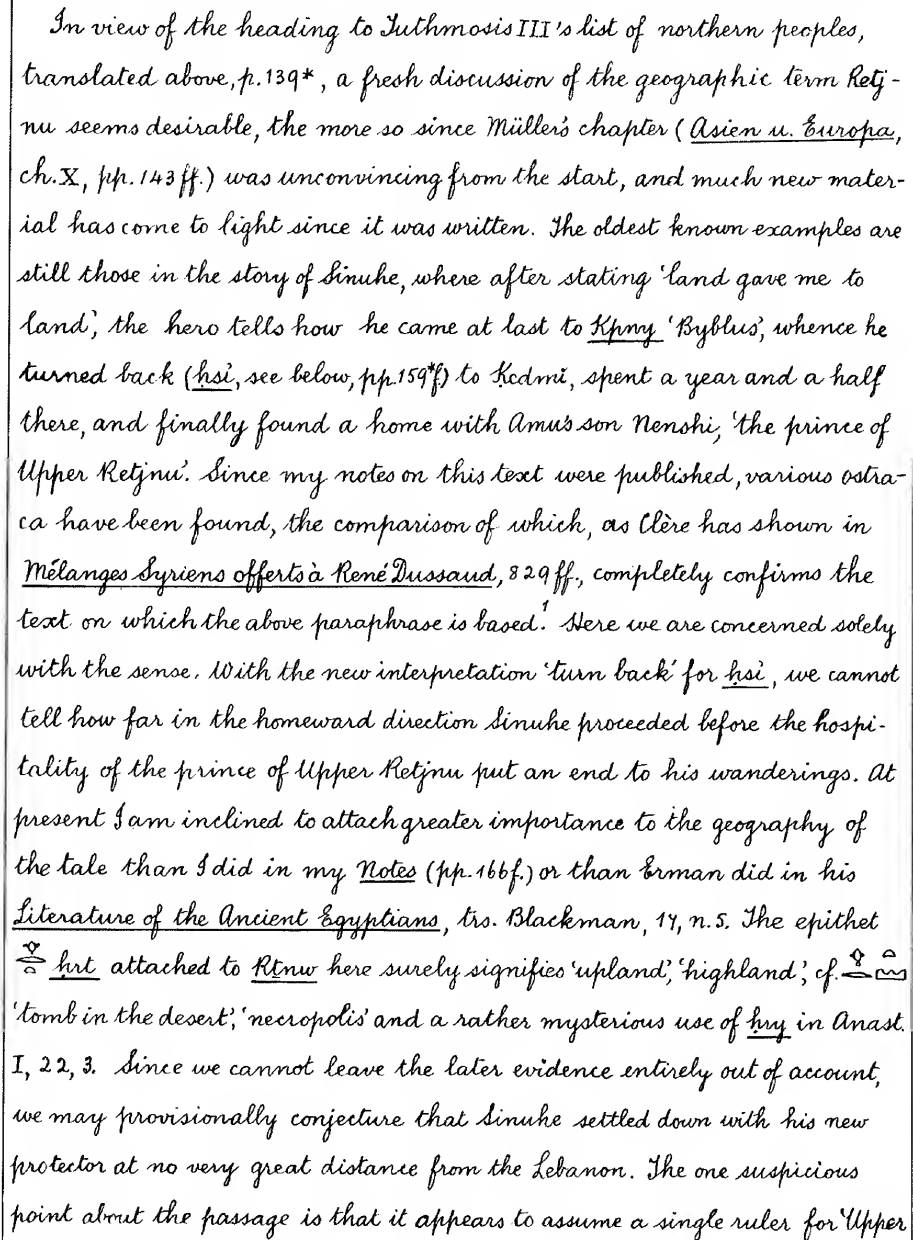 In view of the heading to Tuthmosis III's list of northern peoples,
translated above, p. 139*, a fresh discussion of the geographic term Retj-
nu seems desirable, the more so since Müller's chapter (Asien u. Europa,
ch. X, pp. 143 ff.) was unconvincing from the start, and much new mater-
ial has come to light since it was written. The oldest known examples are
still those in the story of Sinuhe, where after stating 'land gave me to
land', the hero tells how he came at last to Kpny 'Byblus', whence he
turned back (ḥsỉ, see below, pp. 159*f.) to Ḳedmi, spent a year and a half
there, and finally found a home with Amu's son Nenshi, 'the prince of
Upper Retjnu'. Since my notes on this text were published, various ostra-
ca have been found, the comparison of which, as Clère has shown in
Mélanges Syriens offerts à René Dussaud, 829 ff., completely confirms the
text on which the above paraphrase is based.¹ Here we are concerned solely
with the sense. With the new interpretation 'turn back' for ḥsỉ, we cannot
tell how far in the homeward direction Sinuhe proceeded before the hospi-
tality of the prince of Upper Retjnu put an end to his wanderings. At
present I am inclined to attach greater importance to the geography of
the tale than I did in my Notes (pp. 166 f.) or than Erman did in his
Literature of the Ancient Egyptians, trs. Blackman, 17, n. 5. The epithet
ḥrt attached to Rṯnw here surely signifies 'upland', 'highland', cf.
'tomb in the desert', 'necropolis' and a rather mysterious use of ḥry in Anast.
I, 22, 3. Since we cannot leave the later evidence entirely out of account,
we may provisionally conjecture that Sinuhe settled down with his new
protector at no very great distance from the Lebanon. The one suspicious
point about the passage is that it appears to assume a single ruler for 'Upper